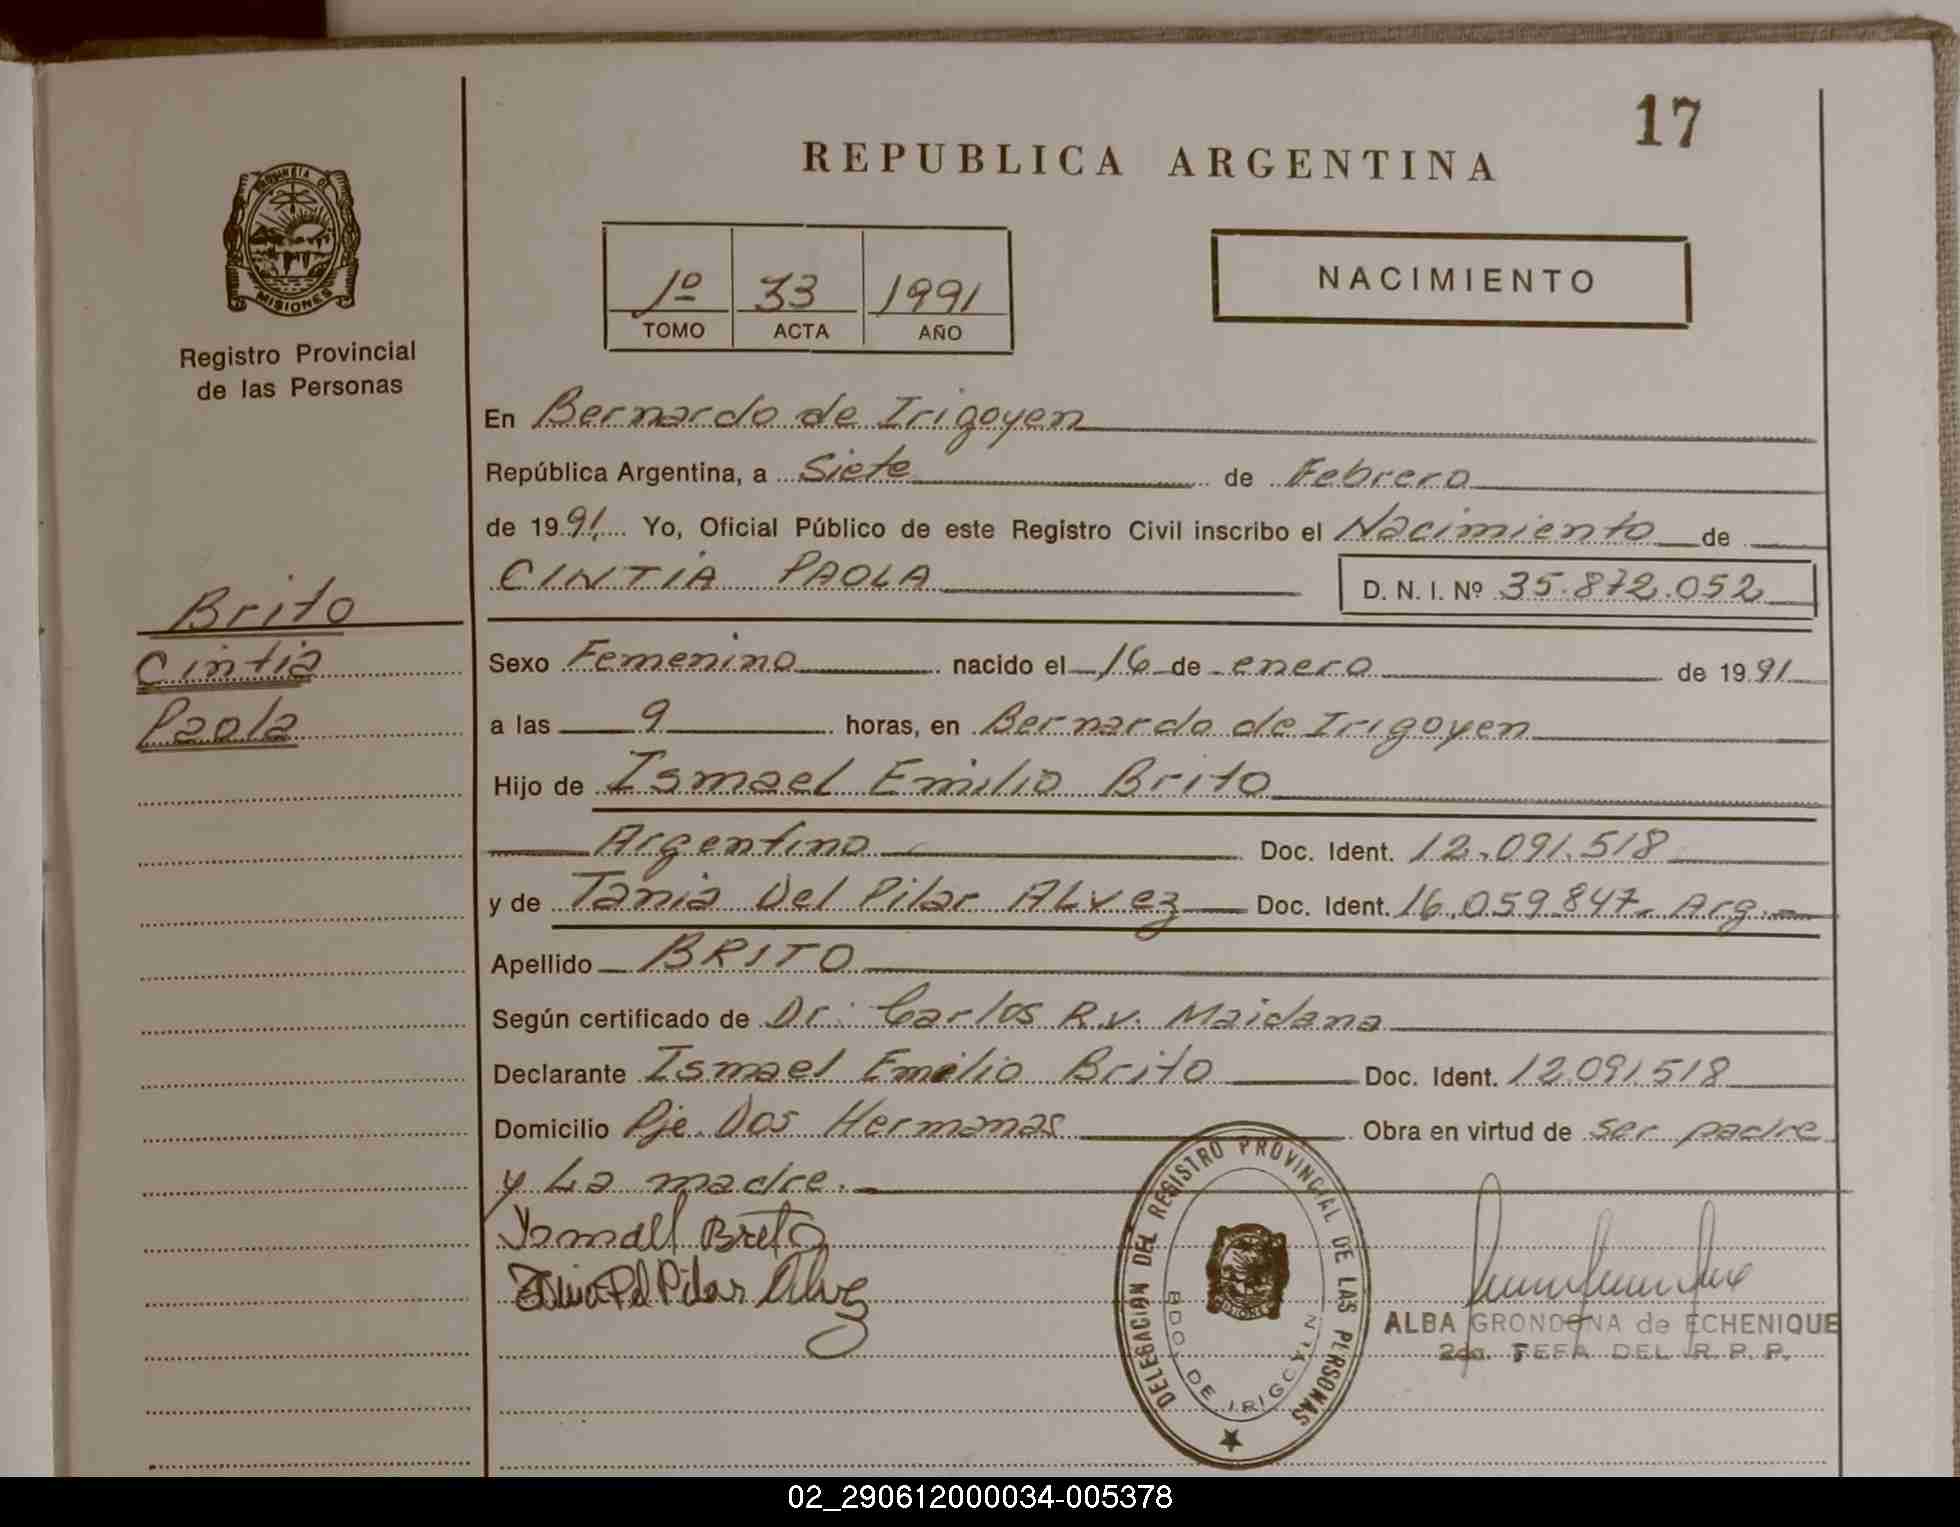 17
REPUBLICA ARGENTINA
PROVINCIA DE
MISIONES
Registro Provincial
de las Personas
1º 33 1991
TOMO ACTA AÑO
NACIMIENTO
En Bernardo de Irigoyen
República Argentina, a Siete de Febrero
de 1991. Yo, Oficial Público de este Registro Civil inscribo el Nacimiento de
CINTIA PAOLA D. N. I. Nº 35.872.052
Brito
Cintia
Paola
Sexo Femenino nacido el 16 de enero de 1991
a las 9 horas, en Bernardo de Irigoyen
Hijo de Ismael Emilio Brito
Argentino Doc. Ident. 12.091.518
y de Tania Del Pilar ALvez Doc. Ident. 16.059.847. Arg.
Apellido BRITO
Según certificado de Dr. Carlos R.V. Maidana
Declarante Ismael Emilio Brito Doc. Ident. 12.091.518
Domicilio Pje. Dos Hermanas Obra en virtud de ser padre
y La madre.
Ysmall Brito
Pilar Alvez
DELEGACION DEL REGISTRO PROVINCIAL DE LAS PERSONAS
BDO. DE IRIGOYEN
MISIONES
ALBA GRONDONA de ECHENIQUE
2da. JEFA DEL R. P. P.
02_290612000034-005378